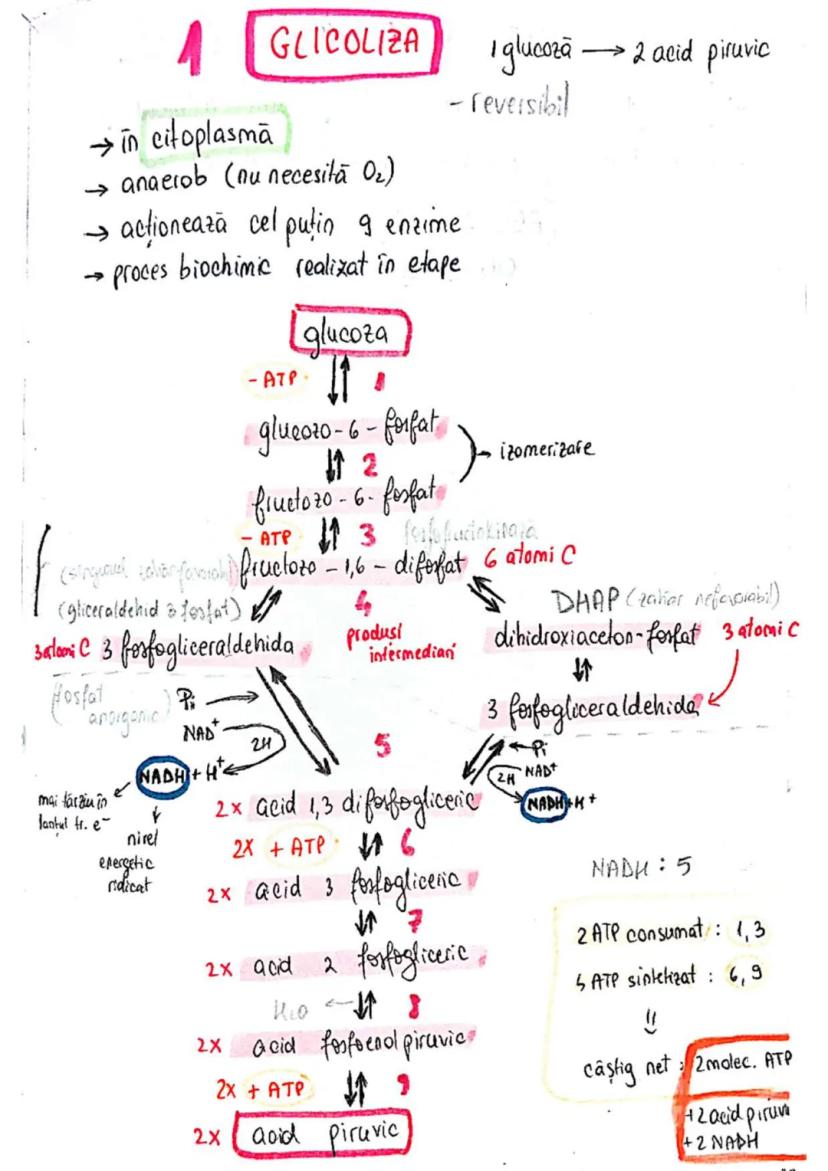 1 GLICOLIZA
1 glucoză → 2 acid piruvic
- reversibil
→ în citoplasmă
→ anaerob (nu necesită O₂)
→ acționează cel puțin 9 enzime
→ proces biochimic realizat în etape
glucoza
- ATP 1
glucozo - 6 - fosfat
→ izomerizare
2
fructozo - 6 - fosfat
- ATP 3 fosfofructokinază
fructozo - 1,6 - difosfat 6 atomi C
(gliceraldehid 3 fosfat)
4
produși
intermediari
DHAP (zahar nefavorabil)
3 atomi C 3 fosfogliceraldehida
dihidroxiaceton-fosfat 3 atomi C
3 fosfogliceraldehida
(fosfat
anorganic)
Pi
NAD⁺
2H
NADH + H⁺
mai târziu în
lanțul tr. e⁻
nivel
energetic
ridicat
5
Pi
2H NAD⁺
NADH + H⁺
2x acid 1,3 difosfogliceric
2X + ATP 6
2x acid 3 fosfogliceric
7
2x acid 2 fosfogliceric
H₂O ← 8
2x acid fosfoenol piruvic
2x + ATP 9
2x acid piruvic
NADH : 5
2 ATP consumat : 1,3
4 ATP sintetizat : 6,9
câștig net : 2 molec. ATP
+ 2 acid piruvi
+ 2 NADH